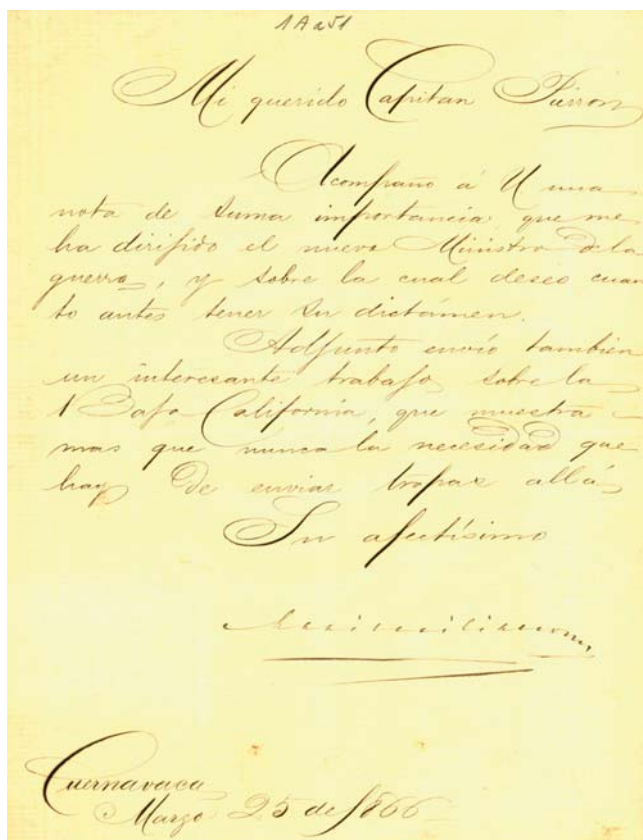 1 A a 51
Mi querido Capitan Pierron
Acompaño á U una
nota de suma importancia, que me
ha dirijido el nuevo Ministro de la
guerra, y sobre la cual deseo cuan
to antes tener su dictámen.
Adjunto envío tambien
un interesante trabajo sobre la
Baja California, que muestra
mas que nunca la necesidad que
hay de enviar tropas allá
Su afectísimo
Maximiliano
Cuernavaca
Marzo 25 de 1866